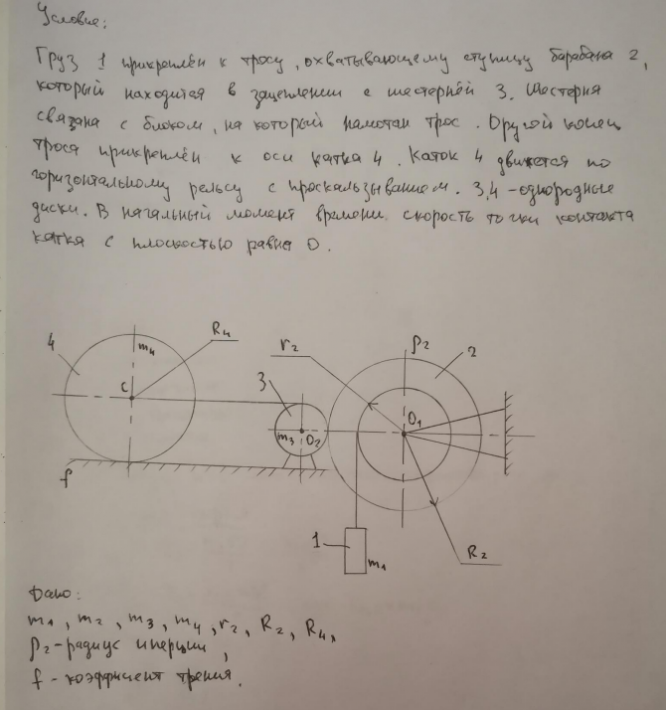 Условие:
Груз 1 прикреплён к тросу, охватывающему ступицу барабана 2,
который находится в зацеплении с шестернёй 3. Шестерня
связана с блоком, на который намотан трос. Другой конец
троса прикреплён к оси катка 4. Каток 4 движется по
горизонтальному рельсу с проскальзыванием. 3,4 - однородные
диски. В начальный момент времени скорость точки контакта
катка с плоскостью равна 0.
4
m₄
R₄
C
f
3
m₃ O₂
r₂
ρ₂
2
O₁
1
m₁
R₂
Дано:
m₁, m₂, m₃, m₄, r₂, R₂, R₄,
ρ₂ - радиус инерции,
f - коэффициент трения.